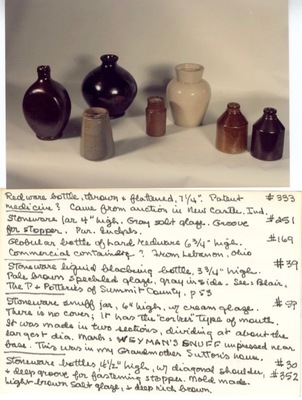 Redware bottle, thrown & flattened, 7 1/4". Patent #333
medicine? Came from auction in New Castle, Ind.
Stoneware jar 4" high. Gray salt glaze. Groove #251
for stopper. Pur.
Globular bottle of hard redware 6 3/4" high. #169
Commercial container? From Lebanon, Ohio
Stoneware liquid blacking bottle, 3 3/4" high. #39
Pale brown speckled glaze, gray inside. See: Blair,
The P & Potteries of Summit County. p 53
Stoneware snuff jar, 6" high, w/ cream glaze.
There is no cover; it has the "corker" type of mouth.
It was made in two sections, dividing at about the
largest dia. Marks: WEYMAN'S SNUFF impressed near
base. This was in my Grandmother Sutton's house.
Stoneware bottles 4 1/2" high, w/ diagonal shoulder, #30
& deep groove for fastening stopper. Mold made. #352
light-brown salt glaze, & deep rich brown.